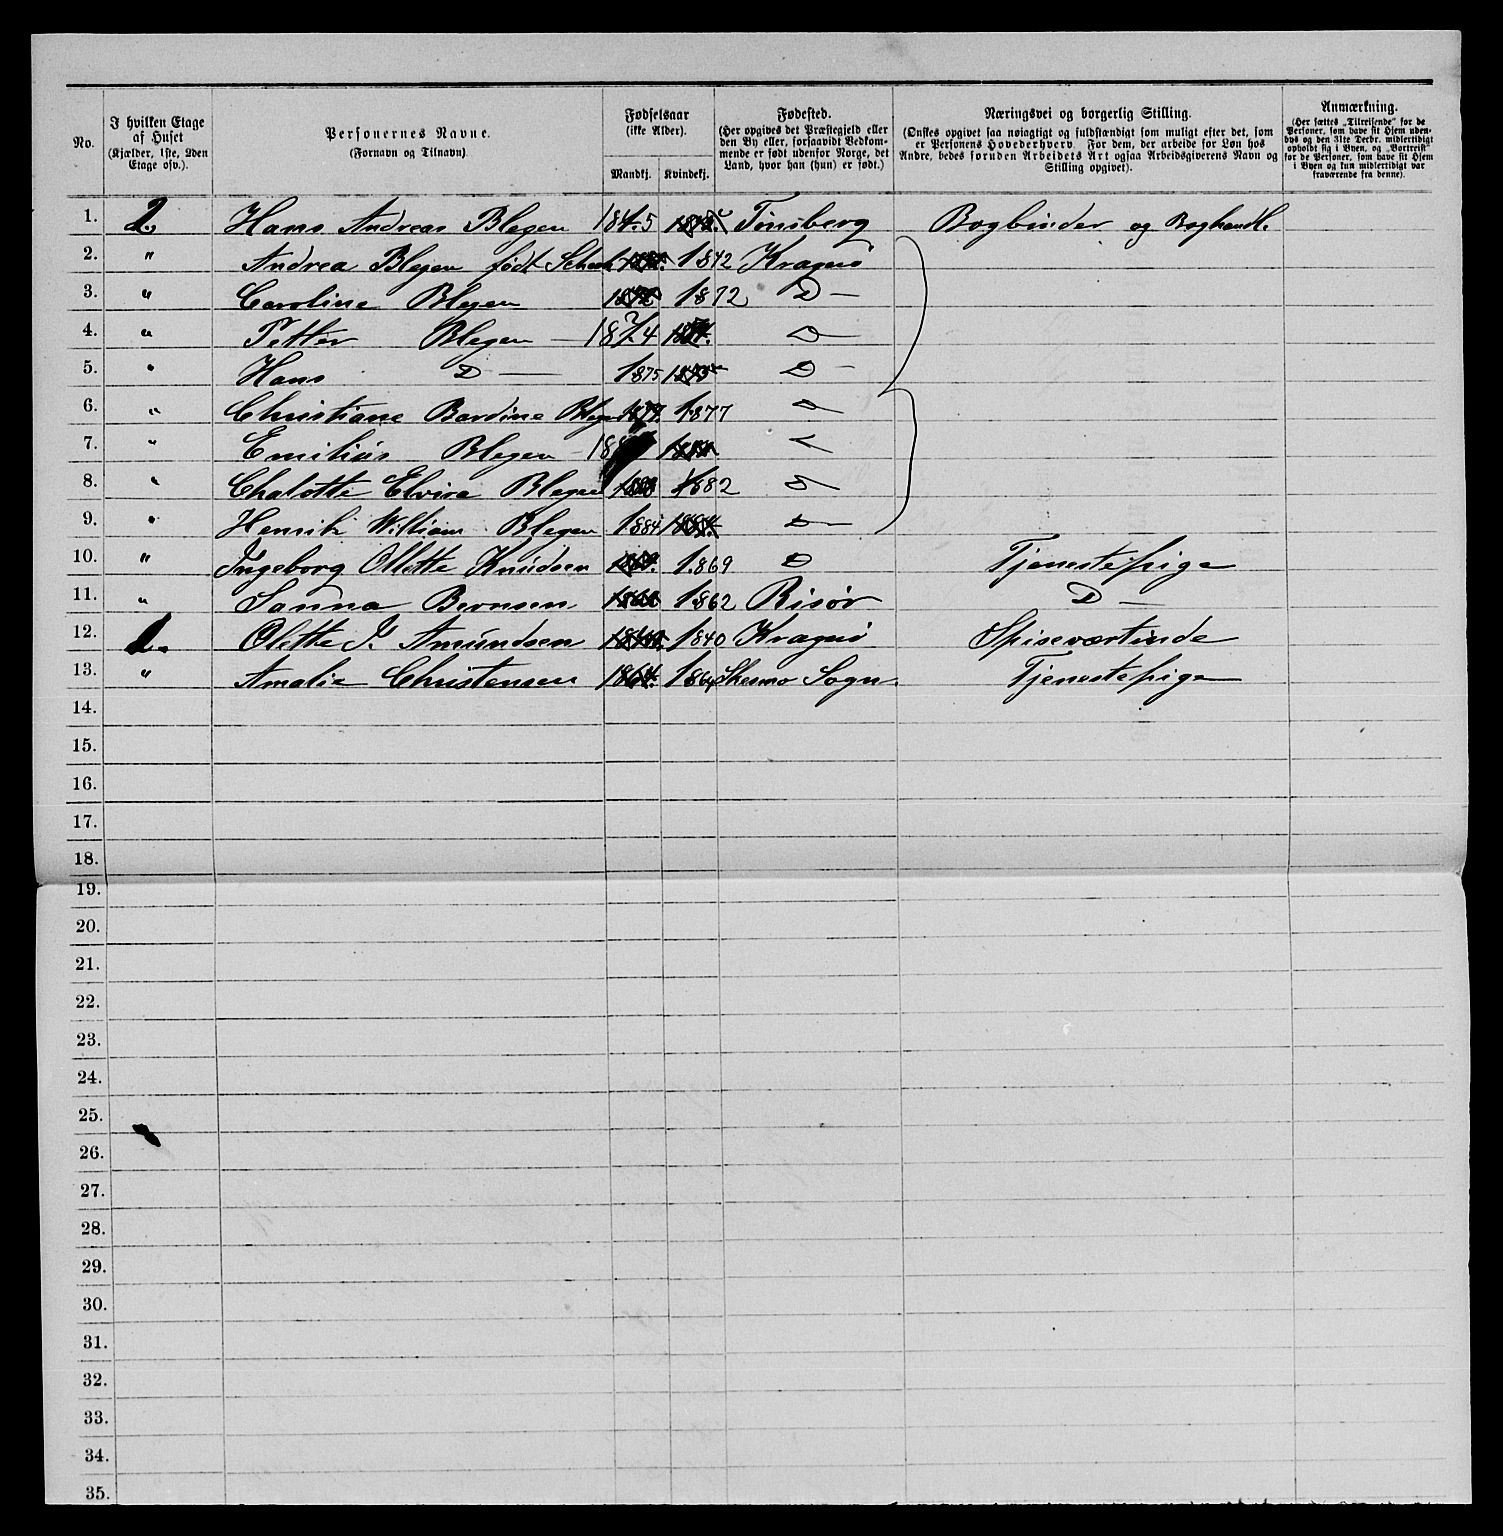 No.
I hvilken Etage af Huset (Kjælder, 1ste, 2den Etage osv.).
Personernes Navne. (Fornavn og Tilnavn).
Fødselsaar (ikke Alder).
Mandkj. Kvindekj.
Fødested. (Her opgives det Præstegjeld eller den By eller, forsaavidt Vedkommende er født udenfor Norge, det Land, hvor han (hun) er født.)
Næringsvei og borgerlig Stilling. (Ønskes opgivet saa nøiagtigt og fuldstændigt som muligt efter det, som er Personens Hovederhverv. For dem, der arbeide for Løn hos Andre, bedes foruden Arbeidets Art ogsaa Arbeidsgiverens Navn og Stilling opgivet).
Anmærkning. (Her sættes „Tilreisende“ for de Personer, som have sit Hjem udenbys og den 31te Decbr. midlertidigt opholdt sig i Byen, og „Bortreist“ for de Personer, som have sit Hjem i Byen og kun midlertidigt var fraværende fra denne).
1. 2. Hans Andreas Blegen 1845 Tønsberg Bogbinder og Boghandl.
2. " Andrea Blegen født 1842 Kragerø
3. " Caroline Blegen 1872 D —
4. " Petter Blegen — 1874 D —
5. " Hans D — 1875 D —
6. " Christiane Bardine Blegen 1877 D —
7. " Emilius Blegen
8. " Chalotte Elvira Blegen 1882 D —
9. " Henrik William Blegen 1884 D —
10. " Ingeborg Olette Knudsen 1869 D Tjenestepige
11. " Sanna Bernsen 1862 Risør D —
12. 1. Olette J. Amundsen 1840 Kragerø Spiseværtinde
13. " Amalie Christensen 1864 Sogn. Tjenestepige
14.
15.
16.
17.
18.
19.
20.
21.
22.
23.
24.
25.
26.
27.
28.
29.
30.
31.
32.
33.
34.
35.